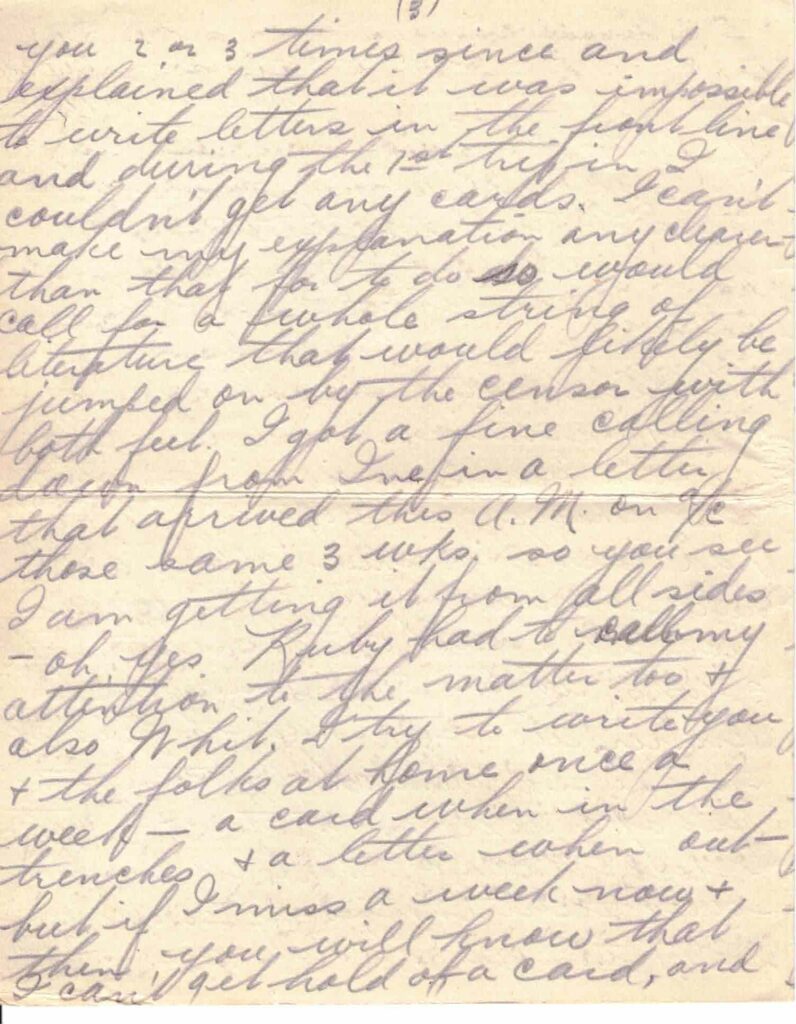 (3)
you 2 or 3 times since and
explained that it was impossible
to write letters in the front line
and during the 1st trip in I
couldn't get any cards. I can't
make my explanation any clearer
than that for to do so would
call for a whole string of
literature that would likely be
jumped on by the censor with
both feet. I got a fine calling
down from in a letter
that arrived this A.M. on a/c
those same 3 wks. so you see
I am getting it from all sides
- oh, yes. Ruby had to call my
attention to the matter too +
also Whit. I try to write you
+ the folks at home once a
week - a card when in the
trenches + a letter when out -
but if I miss a week now +
then, you will know that
I can't get hold of a card, and